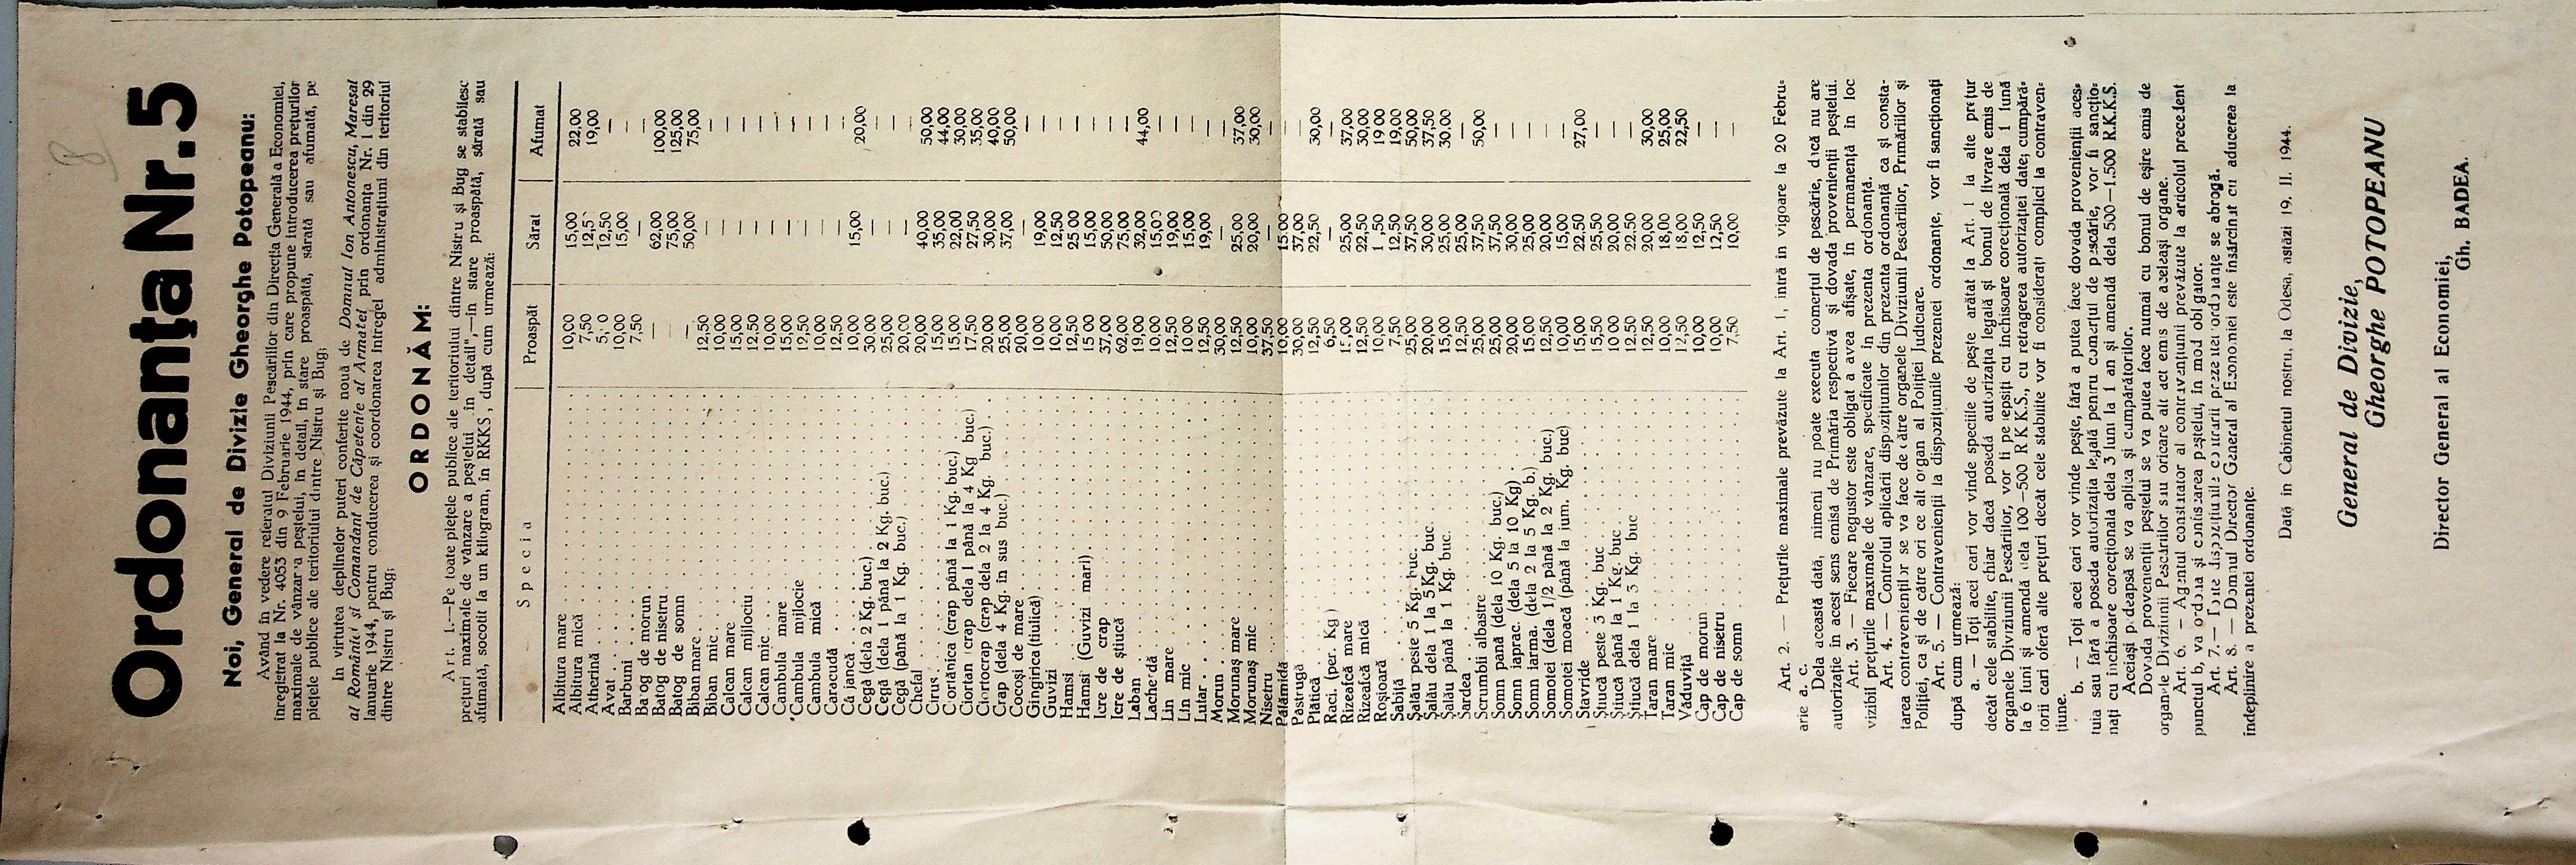 8
Ordonanța Nr. 5
Noi, General de Divizie Gheorghe Potopeanu:
Având în vedere referatul Diviziunii Pescăriilor din Direcția Generală a Economiei,
înregistrat la Nr. 4053 din 9 Februarie 1944, prin care propune introducerea prețurilor
maximale de vânzare a peștelui, în detail, în stare proaspătă, sărată sau afumată, pe
piețele publice ale teritoriului dintre Nistru și Bug;
In virtutea deplinelor puteri conferite nouă de Domnul Ion Antonescu, Mareșal
al României și Comandant de Căpetenie al Armatei prin ordonanța Nr. 1 din 29
Ianuarie 1944, pentru conducerea și coordonarea întregei administrațiuni din teritoriul
dintre Nistru și Bug;
ORDONĂM:
Art. 1.—Pe toate piețele publice ale teritoriului dintre Nistru și Bug se stabilesc
prețuri maximale de vânzare a peștelui „în detail",—în stare proaspătă, sărată sau
afumată, socotit la un kilogram, în RKKS, după cum urmează:
Specia Proaspăt Sărat Afumat
Albitura mare 10,00 15,00 22,00
Albitura mică 7,50 12,5 19,00
Atherină 5, 0 12,50 —
Avat 10,00 15,00 —
Barbuni 7,50 — —
Batog de morun — 62,00 100,00
Batog de nisetru — 75,00 125,00
Batog de somn — 50,00 75,00
Biban marc 12,50 — —
Biban mic 10,00 — —
Calcan mare 15,00 — —
Calcan mijlociu 12,50 — —
Calcan mic 10,00 — —
Cambula mare 15,00 — —
Cambula mijlocie 12,50 — —
Cambula mică 10,00 — —
Caracudă 12,50 — —
Că jancă 10,00 15,00 20,00
Cegă (dela 2 Kg. buc.) 30,00 — —
Cegă (dela 1 până la 2 Kg. buc.) 25,00 — —
Cegă (până la 1 Kg. buc.) 20,00 — —
Chefal 20,00 40,00 50,00
Cirus 15,00 35,00 44,00
Ciorlănica (crap până la 1 Kg. buc.) 15,00 22,00 30,00
Ciorlan (crap dela 1 până la 4 Kg buc.) 17,50 27,50 35,00
Ciortocrap (crap dela 2 la 4 Kg. buc.) 20,00 30,00 40,00
Crap (dela 4 Kg. în sus buc.) 25,00 37,00 50,00
Cocoși de mare 20,00 — —
Gingirica (tiulică) 10,00 19,00 —
Guvizi 10,00 12,50 —
Hamsi 12,50 25 00 —
Hamsi (Guvizi mari) 15 00 15,00 —
Icre de crap 37,00 50,00 —
Icre de știucă 62,00 75,00 —
Laban 19,00 32,00 44,00
Lacherdă 10.00 15,00 —
Lin mare 12,50 19,00 —
Lin mic 10 00 15,00 —
Lufar 12,50 19,00 —
Morun 30,00 — —
Morunaș mare 12,50 25,00 37,00
Morunaș mic 10,00 20,00 30,00
Nisetru 37,50 — —
Pălămidă 10,00 15,00 —
Păstrugă 30,00 37,00 —
Plătică 12,50 22,50 30,00
Raci. (per. Kg) 6,50 — —
Rizeafcă mare 15,00 25,00 37,00
Rizeafcă mică 12,50 22,50 30,00
Roșioară 10,00 1 ,50 19 00
Sabiță 7,50 12,50 19,00
Șalău peste 5 Kg. buc. 25,00 37,50 50,00
Șalău dela 1 la 5 Kg. buc 20,00 30,00 37,50
Șalău până la 1 Kg. buc. 15,00 25,00 30,00
Sardea 12,50 25,00 —
Scrumbii albastre 25,00 37,50 50,00
Somn pană (dela 10 Kg. buc.) 25,00 37,50 —
Somn iaprac. (dela 5 la 10 Kg) 20,00 30,00 —
Somn iarma. (dela 2 la 5 Kg. b.) 15,00 25,00 —
Somotei (dela 1/2 până la 2 Kg. buc.) 12,50 20,00 —
Somotei moacă (până la jum. Kg. buc) 10,00 15,00 —
Stavride 15,00 22,50 27,00
Știucă peste 3 Kg. buc 15,50 25,50 —
Știucă până la 1 Kg. buc 10 00 20,00 —
Știucă dela 1 la 3 Kg. buc 12,50 22,50 —
Taran mare 12,50 20,00 30,00
Taran mic 10,00 18,00 25,00
Văduviță 12,50 18,00 22,50
Cap de morun 10,00 12,50 —
Cap de nisetru 10,00 12,50 —
Cap de somn 7,50 10,00 —
Art. 2. — Prețurile maximale prevăzute la Art. 1, intră în vigoare la 20 Febru-
arie a. c.
Dela această dată, nimeni nu poate executa comerțul de pescărie, dacă nu are
autorizație în acest sens emisă de Primăria respectivă și dovada provenienții peștelui.
Art. 3. — Fiecare negustor este obligat a avea afișate, în permanență în loc
vizibil prețurile maximale de vânzare, specificate în prezenta ordonanță.
Art. 4. — Controlul aplicării dispozițiunilor din prezenta ordonanță ca și consta-
tarea contravenienților se va face de către organele Diviziunii Pescăriilor, Primăriilor și
Poliției, ca și de către ori ce alt organ al Poliției Judiciare.
Art. 5. — Contravenienții la dispozițiunile prezenței ordonanțe, vor fi sancționați
după cum urmează:
a. — Toți acei cari vor vinde speciile de pește arătat la Art. 1 la alte prețur
decât cele stabilite, chiar dacă posedă autorizația legală și bonul de livrare emis de
organele Diviziunii Pescăriilor, vor fi pedepsiți cu închisoare corecțională dela 1 lună
la 6 luni și amendă dela 100—500 R K K.S., cu retragerea autorizației date; cumpără-
torii cari oferă alte prețuri decât cele stabilite vor fi considerați complici la contraven-
țiune.
b. — Toți acei cari vor vinde pește, fără a putea face dovada provenienții aces-
tuia sau fără a poseda autorizația legală pentru comerțul de pescărie, vor fi sancțio-
nați cu închisoare corecțională dela 3 luni la 1 an și amendă dela 500—1.500 R.K.K.S.
Aceiași pedeapsă se va aplica și cumpărătorilor.
Dovada provenienții peștelui se va putea face numai cu bonul de eșire emis de
organele Diviziunii Pescăriilor sau oricare alt act emis de aceleași organe.
Art. 6. — Agentul constatator al contravențiunii prevăzute la articolul precedent
punctul b, va ordona și confiscarea peștelui, în mod obligator.
Art. 7. — Toate dispozițiunile contrarii prezentei ordonanțe se abrogă.
Art. 8. — Domnul Director General al Economiei este însărcinat cu aducerea la
îndeplinire a prezentei ordonanțe.
Dată în Cabinetul nostru, la Odesa, astăzi 19. II. 1944.
General de Divizie,
Gheorghe POTOPEANU
Director General al Economiei,
Gh. BADEA.